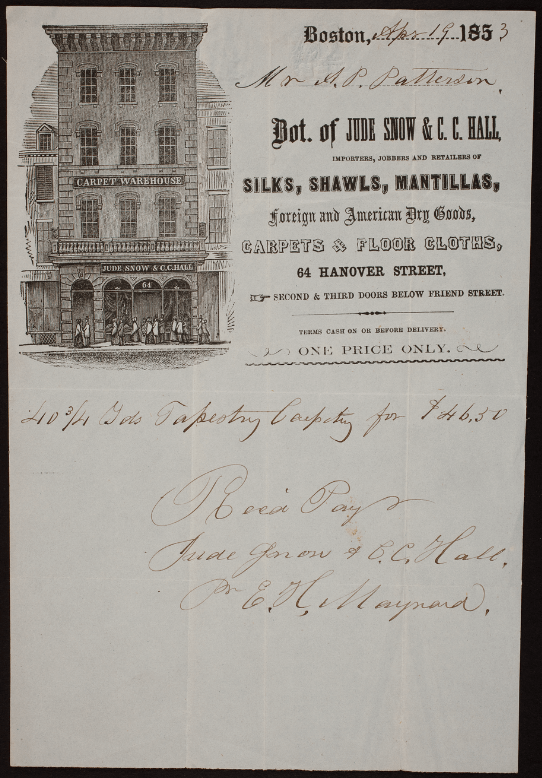 Boston, Apr 19 1853
Mr A. P. Patterson,
Bot. of JUDE SNOW & C. C. HALL,
IMPORTERS, JOBBERS AND RETAILERS OF
SILKS, SHAWLS, MANTILLAS,
Foreign and American Dry Goods,
CARPETS & FLOOR CLOTHS,
64 HANOVER STREET,
SECOND & THIRD DOORS BELOW FRIEND STREET.
TERMS CASH ON OR BEFORE DELIVERY.
ONE PRICE ONLY.
CARPET WAREHOUSE
JUDE SNOW & C.C. HALL
64
40 3/4 Yds Tapestry Carpetg for $46,50
Recd Payt
Jude Snow & C.C. Hall.
pr E. H. Maynard.